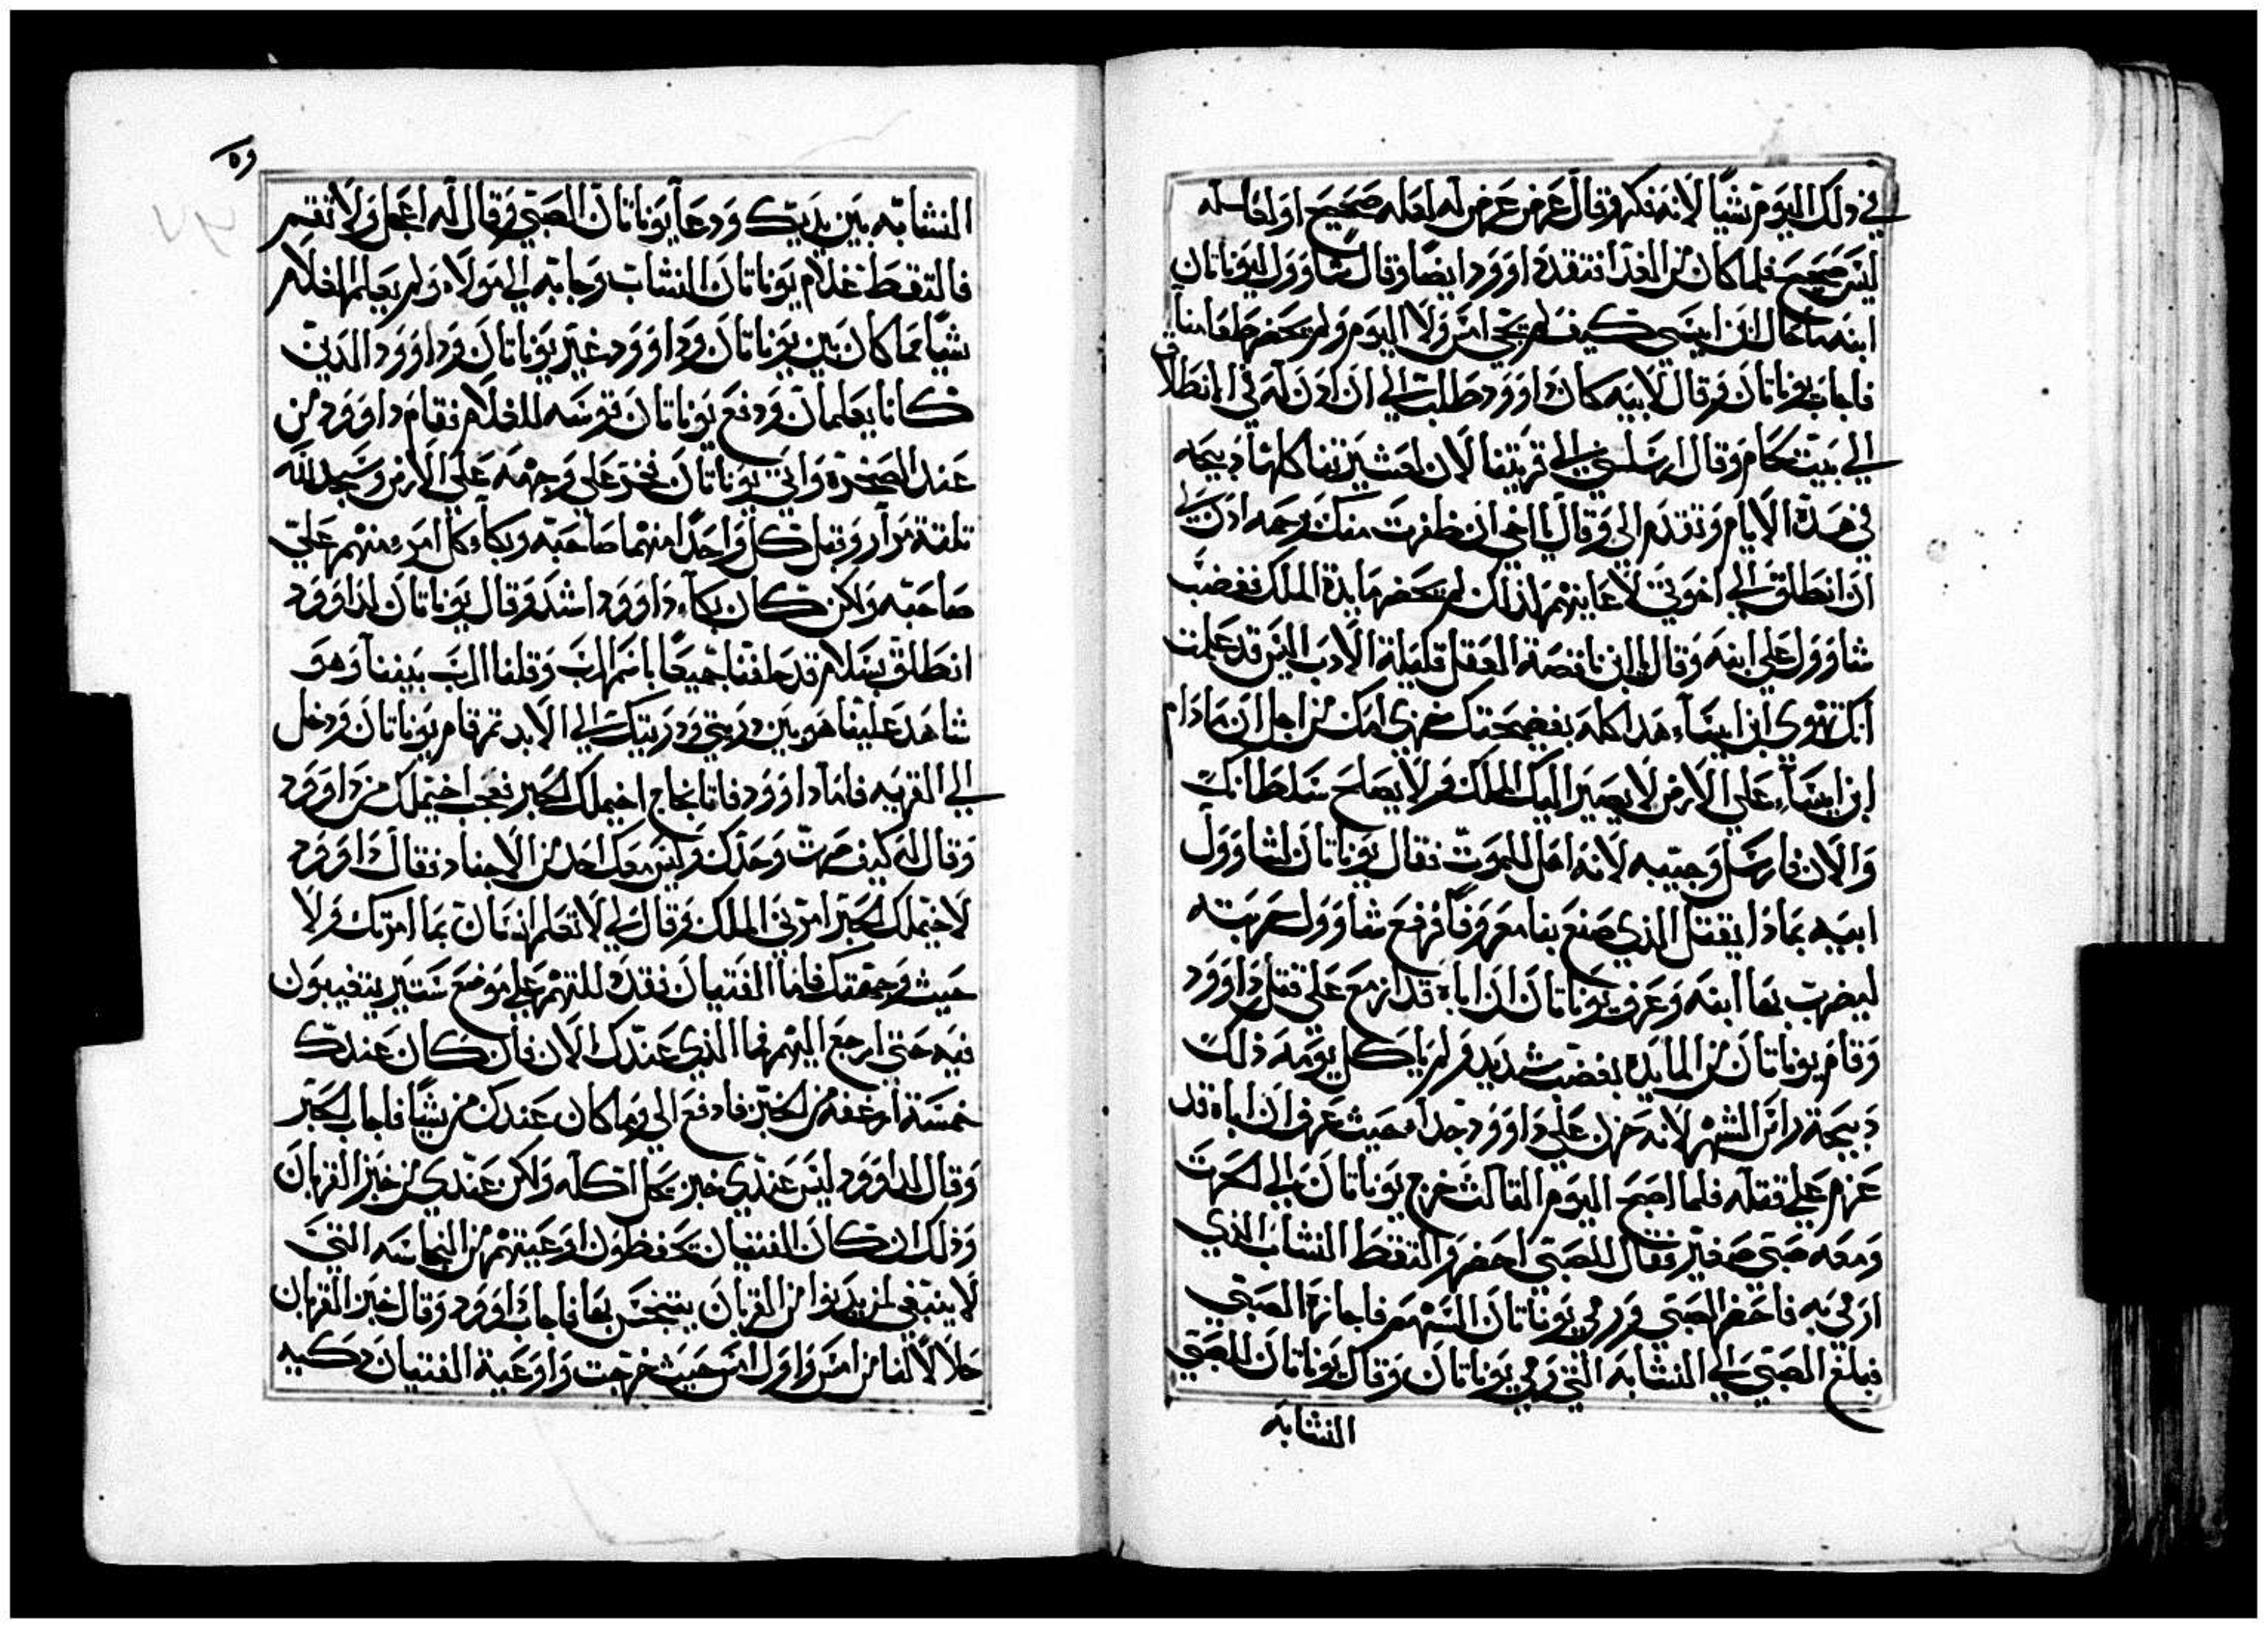 في دلك اليوم شيًا لانه فكر وقال عرض عرض له لعله صحيح او لعله
ليس صحيح فلما كان من الغد افتقد داوود ايضا وقال شاوول ليوناتان
ابنه ما حال ابن ايسى كيف لم يجي امس ولا اليوم ولم يحضر طعامنا
فاجاب يوناتان وقال لابيه كان داوود طلب الي ان ادن له في الانطلاق
الي بيت لحام وقال ارسلني الي قريتنا لان لعشيرتنا كلها دبيحه
في هده الايام وتقدم الي وقال يا اخي ان ظفرت منك برحمه ادن لي
ان انطلق الي اخوتي لاعاينهم لدلك لم يحضر مايدة الملك فغضب
شاوول علي ابنه وقال يا ابن ناقصة العقل قليلة الادب اليس قد علمت
انك تهوي ابن ايساء هدا كله بفضيحتك خزي امك من اجل ان ما دام
ابن ايساء علي الارض لا يصير اليك الملك ولا يصلح سلطانك
والان فارسل وجيبه لانه اهل للموت فقال يوناتان لشاوول
ابيه بمادا يقتل الذي صنع بنا معروفا فرفع شاوول حربته
ليضرب بها ابنه وعرف يوناتان ان اباه قد ازمع علي قتل داوود
وقام يوناتان من المايده بغضب شديد ولم ياكل يومه ذلك
دبيحة راس الشهر لانه حزن علي داوود جدا حيث عرف ان اباه قد
عزم علي قتله فلما اصبح اليوم التالت خرج يوناتان الي الحرت
ومعه صبي صغير فقال للصبي احضر والتقط النشاب الذي
ارمي به فاحضر الصبي ورمي يوناتان السهم فاجازة الصبي
فبلغ الصبي الي النشابه التي رمي يوناتان وقال يوناتان للصبي
النشابه
وه
النشابه بين يديك ودعا يوناتان الصبي وقال له اعجل ولا تقم
فالتقط غلام يوناتان النشاب وجابه الي مولاه ولم يعلم الغلام
شيا مما كان بين يوناتان وداوود غير يوناتان وداوود الدين
كانا يعلمان ودفع يوناتان قوسه للغلام فقام داوود من
عند الصخره واتي يوناتان فخر علي وجهه علي الارض وسجد لله
تلتة مرار وقبل كل واحدا منهما صاحبه وبكا كل امرء منهم علي
صاحبه ولكن كان بكاء داوود اشد وقال يوناتان لداوود
انطلق بسلام قد حلفنا جميعا باسم الرب وقلنا الرب بيننا وهو
شاهد علينا هو بين دريتي ودريتك الي الابد تم قام يوناتان ودخل
الي القريه فاما داوود فاتا نجاج اخيملك الحبر فعجب اخيملك من داوود
وقال له كيف صرت وحدك وليس معك احد من الاجناد فقال داوود
لاخيملك الحبر امرني الملك وقال لي لا تعلم انسان بما امرتك ولا
حيث وجهتك فاما الفتيان فقد دللتهم علي موضع ستير يتغيبون
فيه حتي ارجع اليهم فما الذي عندك الان فان كان عندك
خمسة ارغفه من الخبز فادفع الي وما كان عندك من شيًا فاجاب الحبر
وقال لداوود ليس عندي خبز يحل اكله ولكن عندي من خبز القربان
وذلك ان كان الفتيان يحفظون اوعيتهم من النجاسه التي
لا ينبغي لمن يدنوا من القربان يتنجس بها فاجاب داوود وقال خبز القربان
حلالا لنا من امس واول امس حيث خرجت واوعية الفتيان دكيه